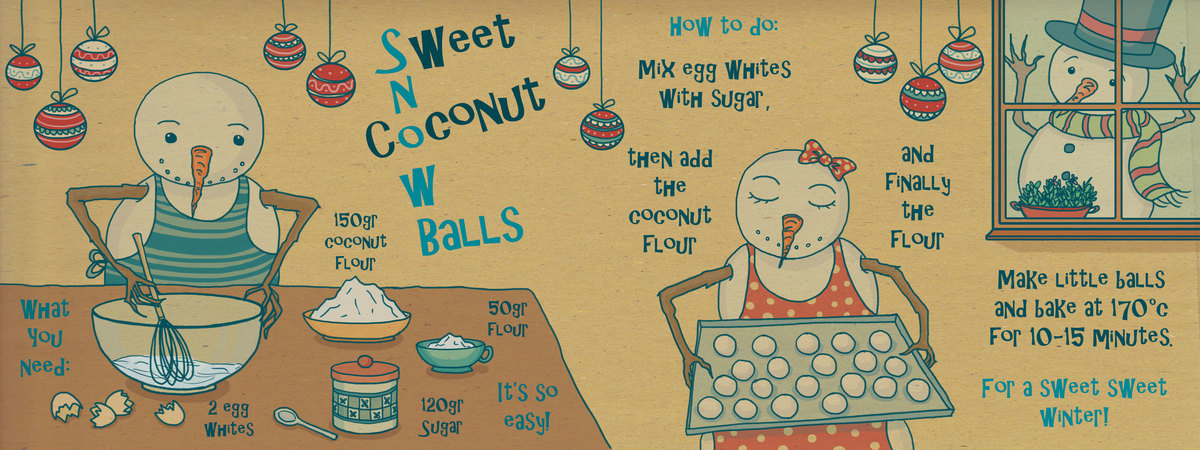 Sweet
Coconut
SNOW
Balls
What
you
Need:
150gr
coconut
Flour
50gr
Flour
2 egg
Whites
120gr
Sugar
It's so
easy!
How to do:
Mix egg Whites
With Sugar,
then add
the
coconut
Flour
and
Finally
the
Flour
Make little balls
and bake at 170°c
For 10-15 Minutes.
For a sweet sweet
Winter!